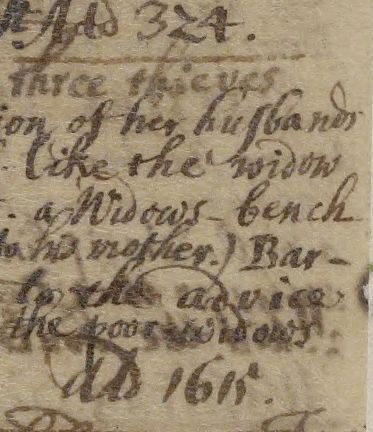 Add 324.
three thieves
ion of her husbands
like the widow
. a Widows-bench
mother.) Bar-
to the advice
the poor widows
AD 1615.